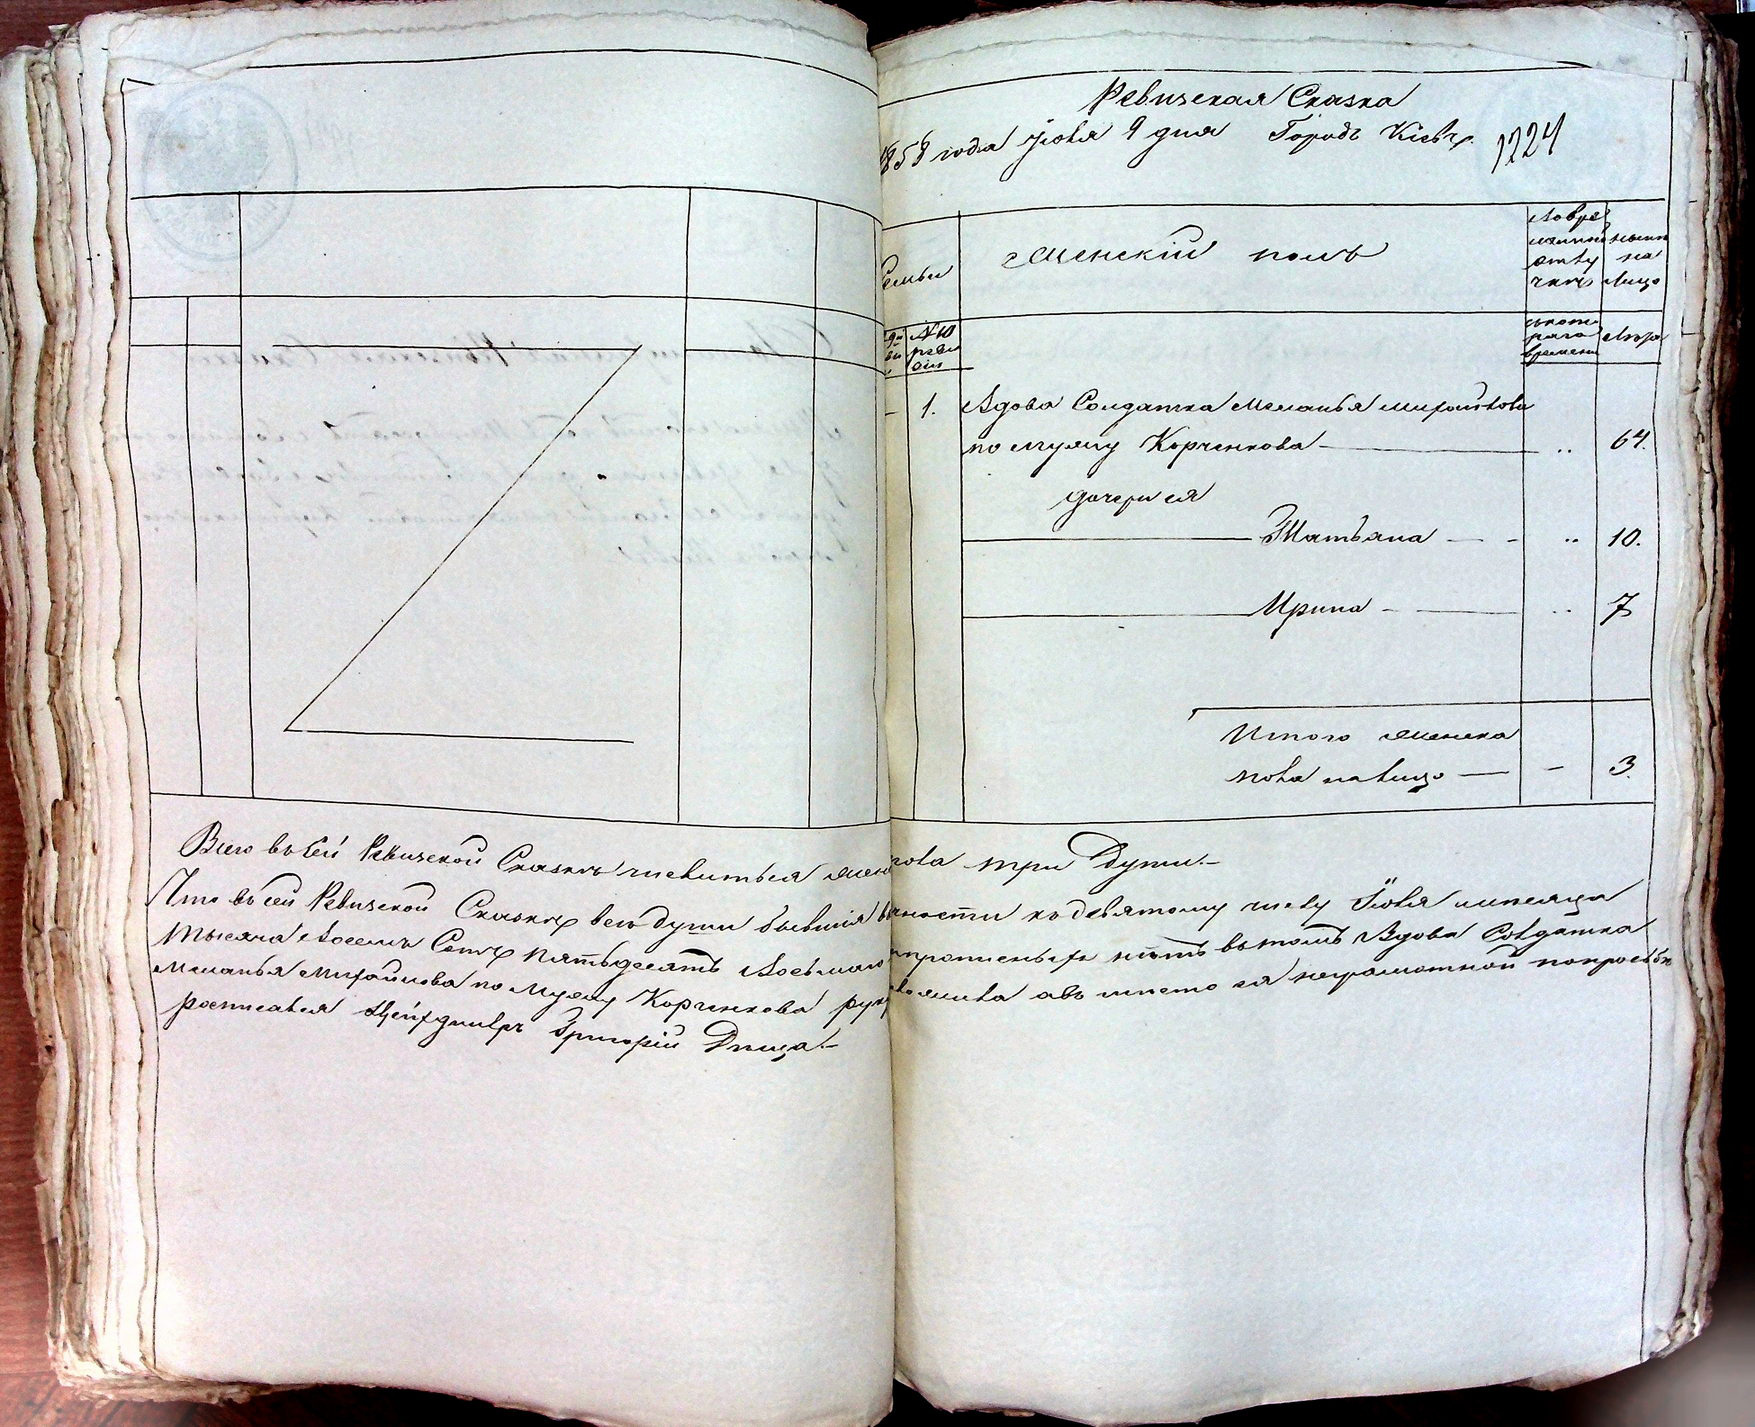 Ревизская Сказка
1858 года Іюля 9 дня Городъ Кіевъ.
1224
Семьи
Женскій полъ
Во вре
менной
отлу
чкѣ
нынѣ
на
лицо
№ 10
реви
зіи
съ кото
раго
времени
Лѣта
1. Вдова Солдатка Меланья Михайлова
по мужу Корченкова .. 64.
дочери ея
Татьяна .. 10.
Ирина .. 7
Итого женска
пола на лицо — 3.
Всего въ сей Ревизской Сказкѣ числиться женс пола три Души.
Что въ сей Ревизской Сказкѣ всѣ души бывшія въ ности къ девятому числу Іюля мѣсяца
Тысяча Восемь Сотъ пятьдесятъ Восьмаго прописныхъ нѣтъ въ томъ Вдова Солдатка
Меланья Михайлова по мужу Корченкова рук а въ мѣсто ея неграмотной по просьбѣ
росписался Цейхдинеръ Григорій